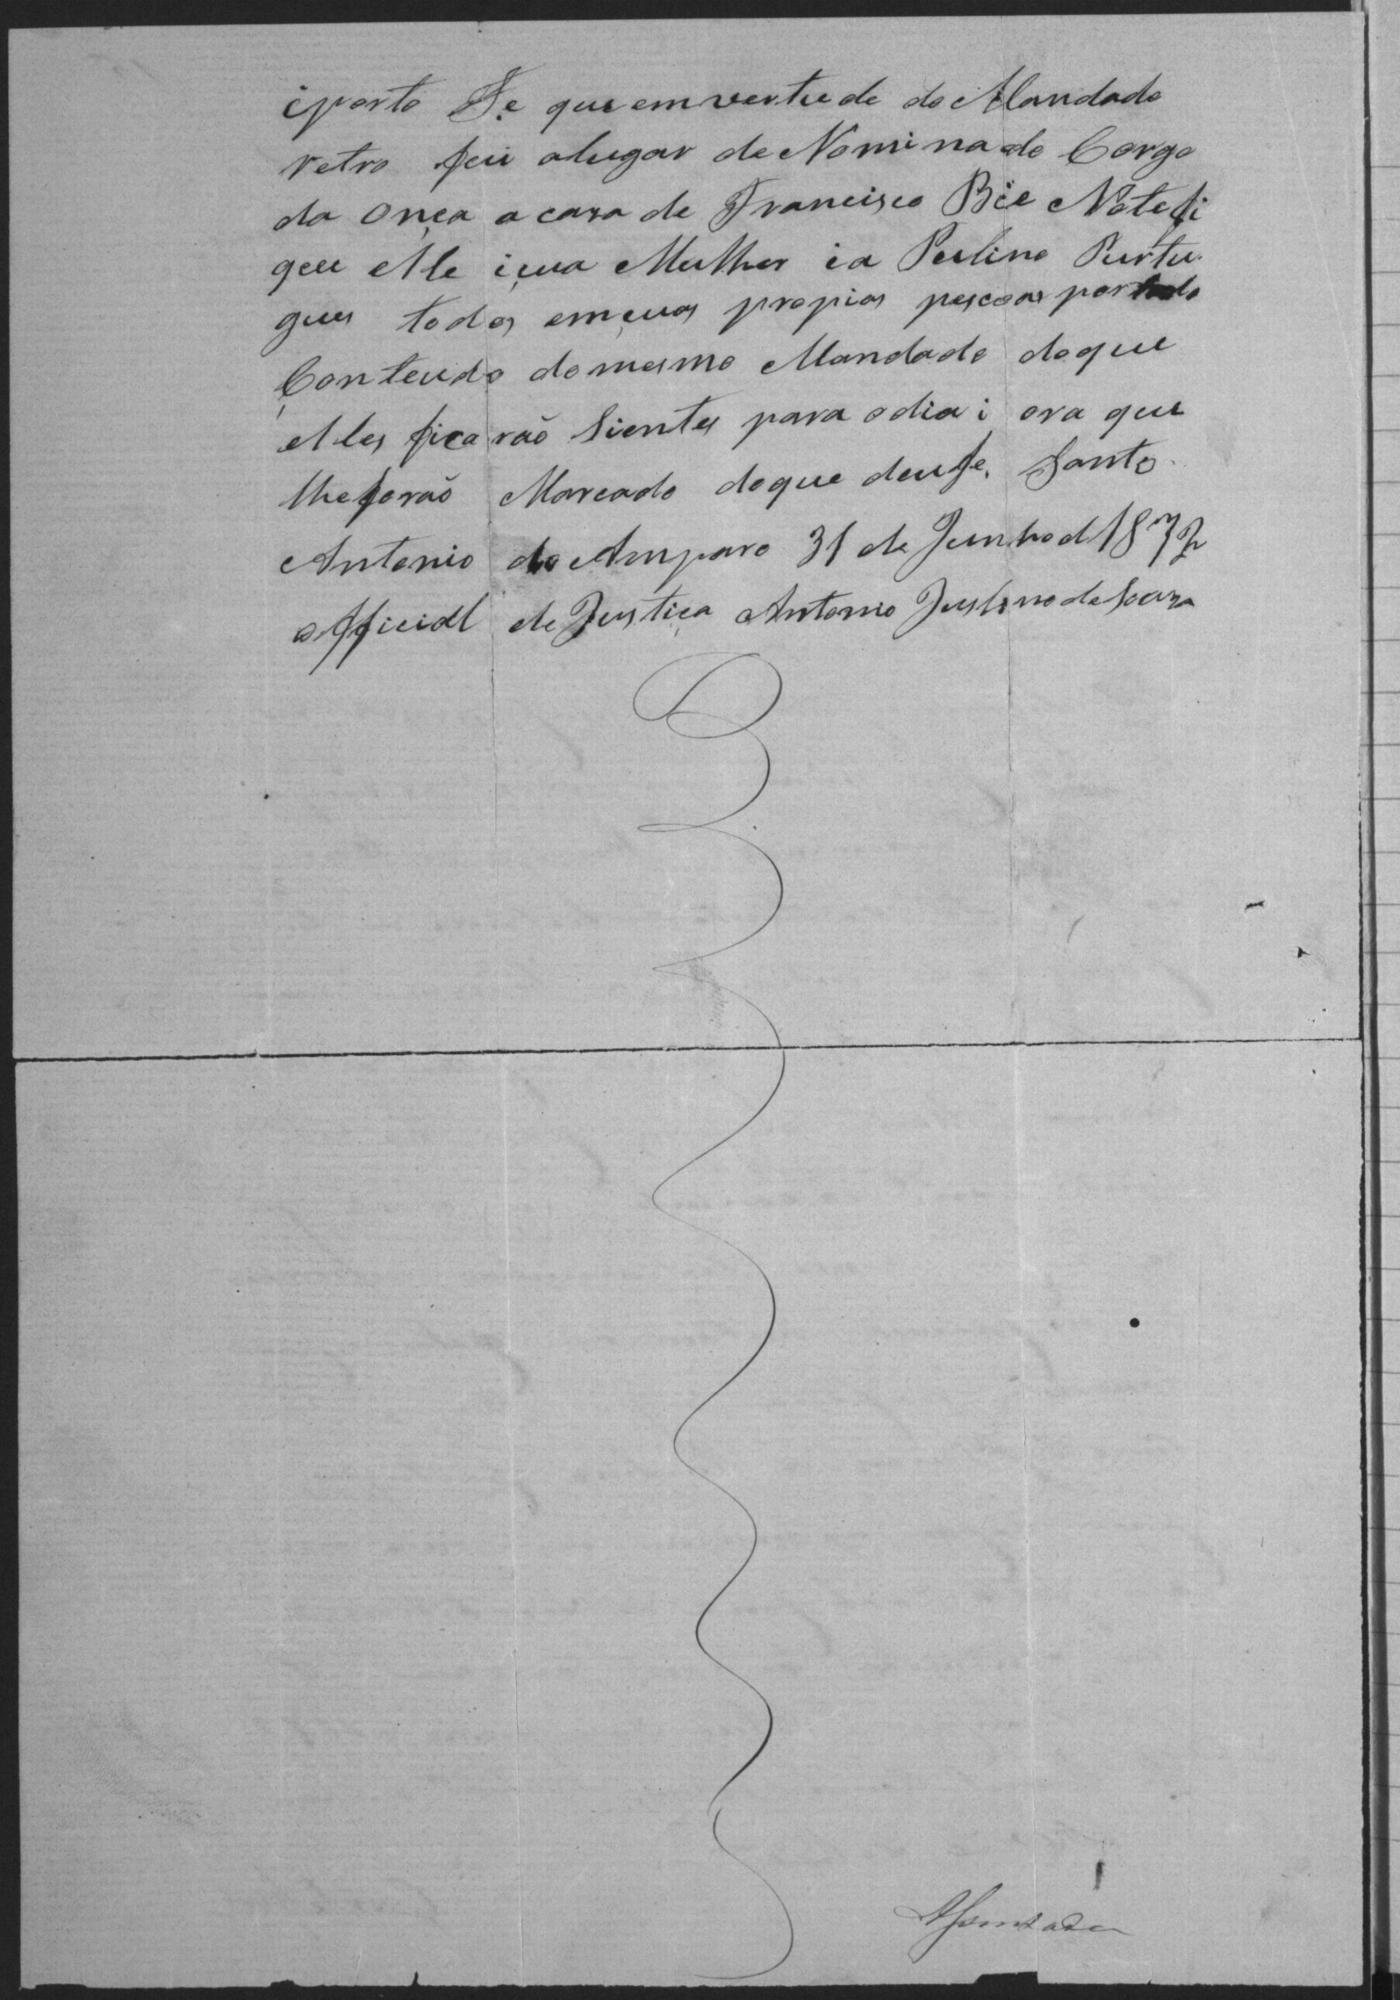 iporto Fe que em vertude do Mandado
retro fui alugar de Nominado Corgo
da Onça a caza de Francisco Bie Notefi
queu elle içua Mulher ia Paulino Purtu
gues todos em çuas propias pescoas por todo
Conteudo do mesmo Mandado do que
elles ficarão Sientes para o dia i ora que
lhe forão Marcado do que deu fe. Santo
Antonio do Amparo 31 de Junho d 1872
official de Justiça Antonio Justino de Souza
Assentada